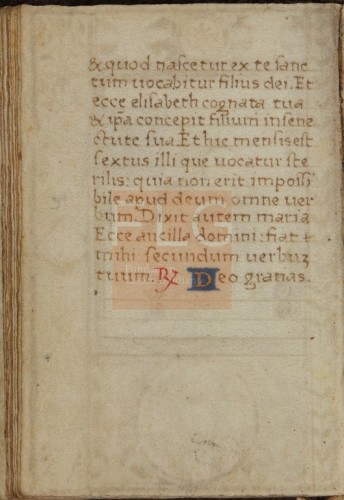 & quod nascetur ex te sanc
tum uocabitur filius dei. Et
ecce elisabeth cognata tua
& ip̃a concepit filium in sene
ctute sua. Et hic mensis est
sextus illi que uocatur ste
rilis: quia non erit impossi
bile apud deum omne uer
bum. Dixit autem maria
Ecce ancilla domini: fiat
mihi secundum uerbuz
tuum. ℞ Deo gratias.